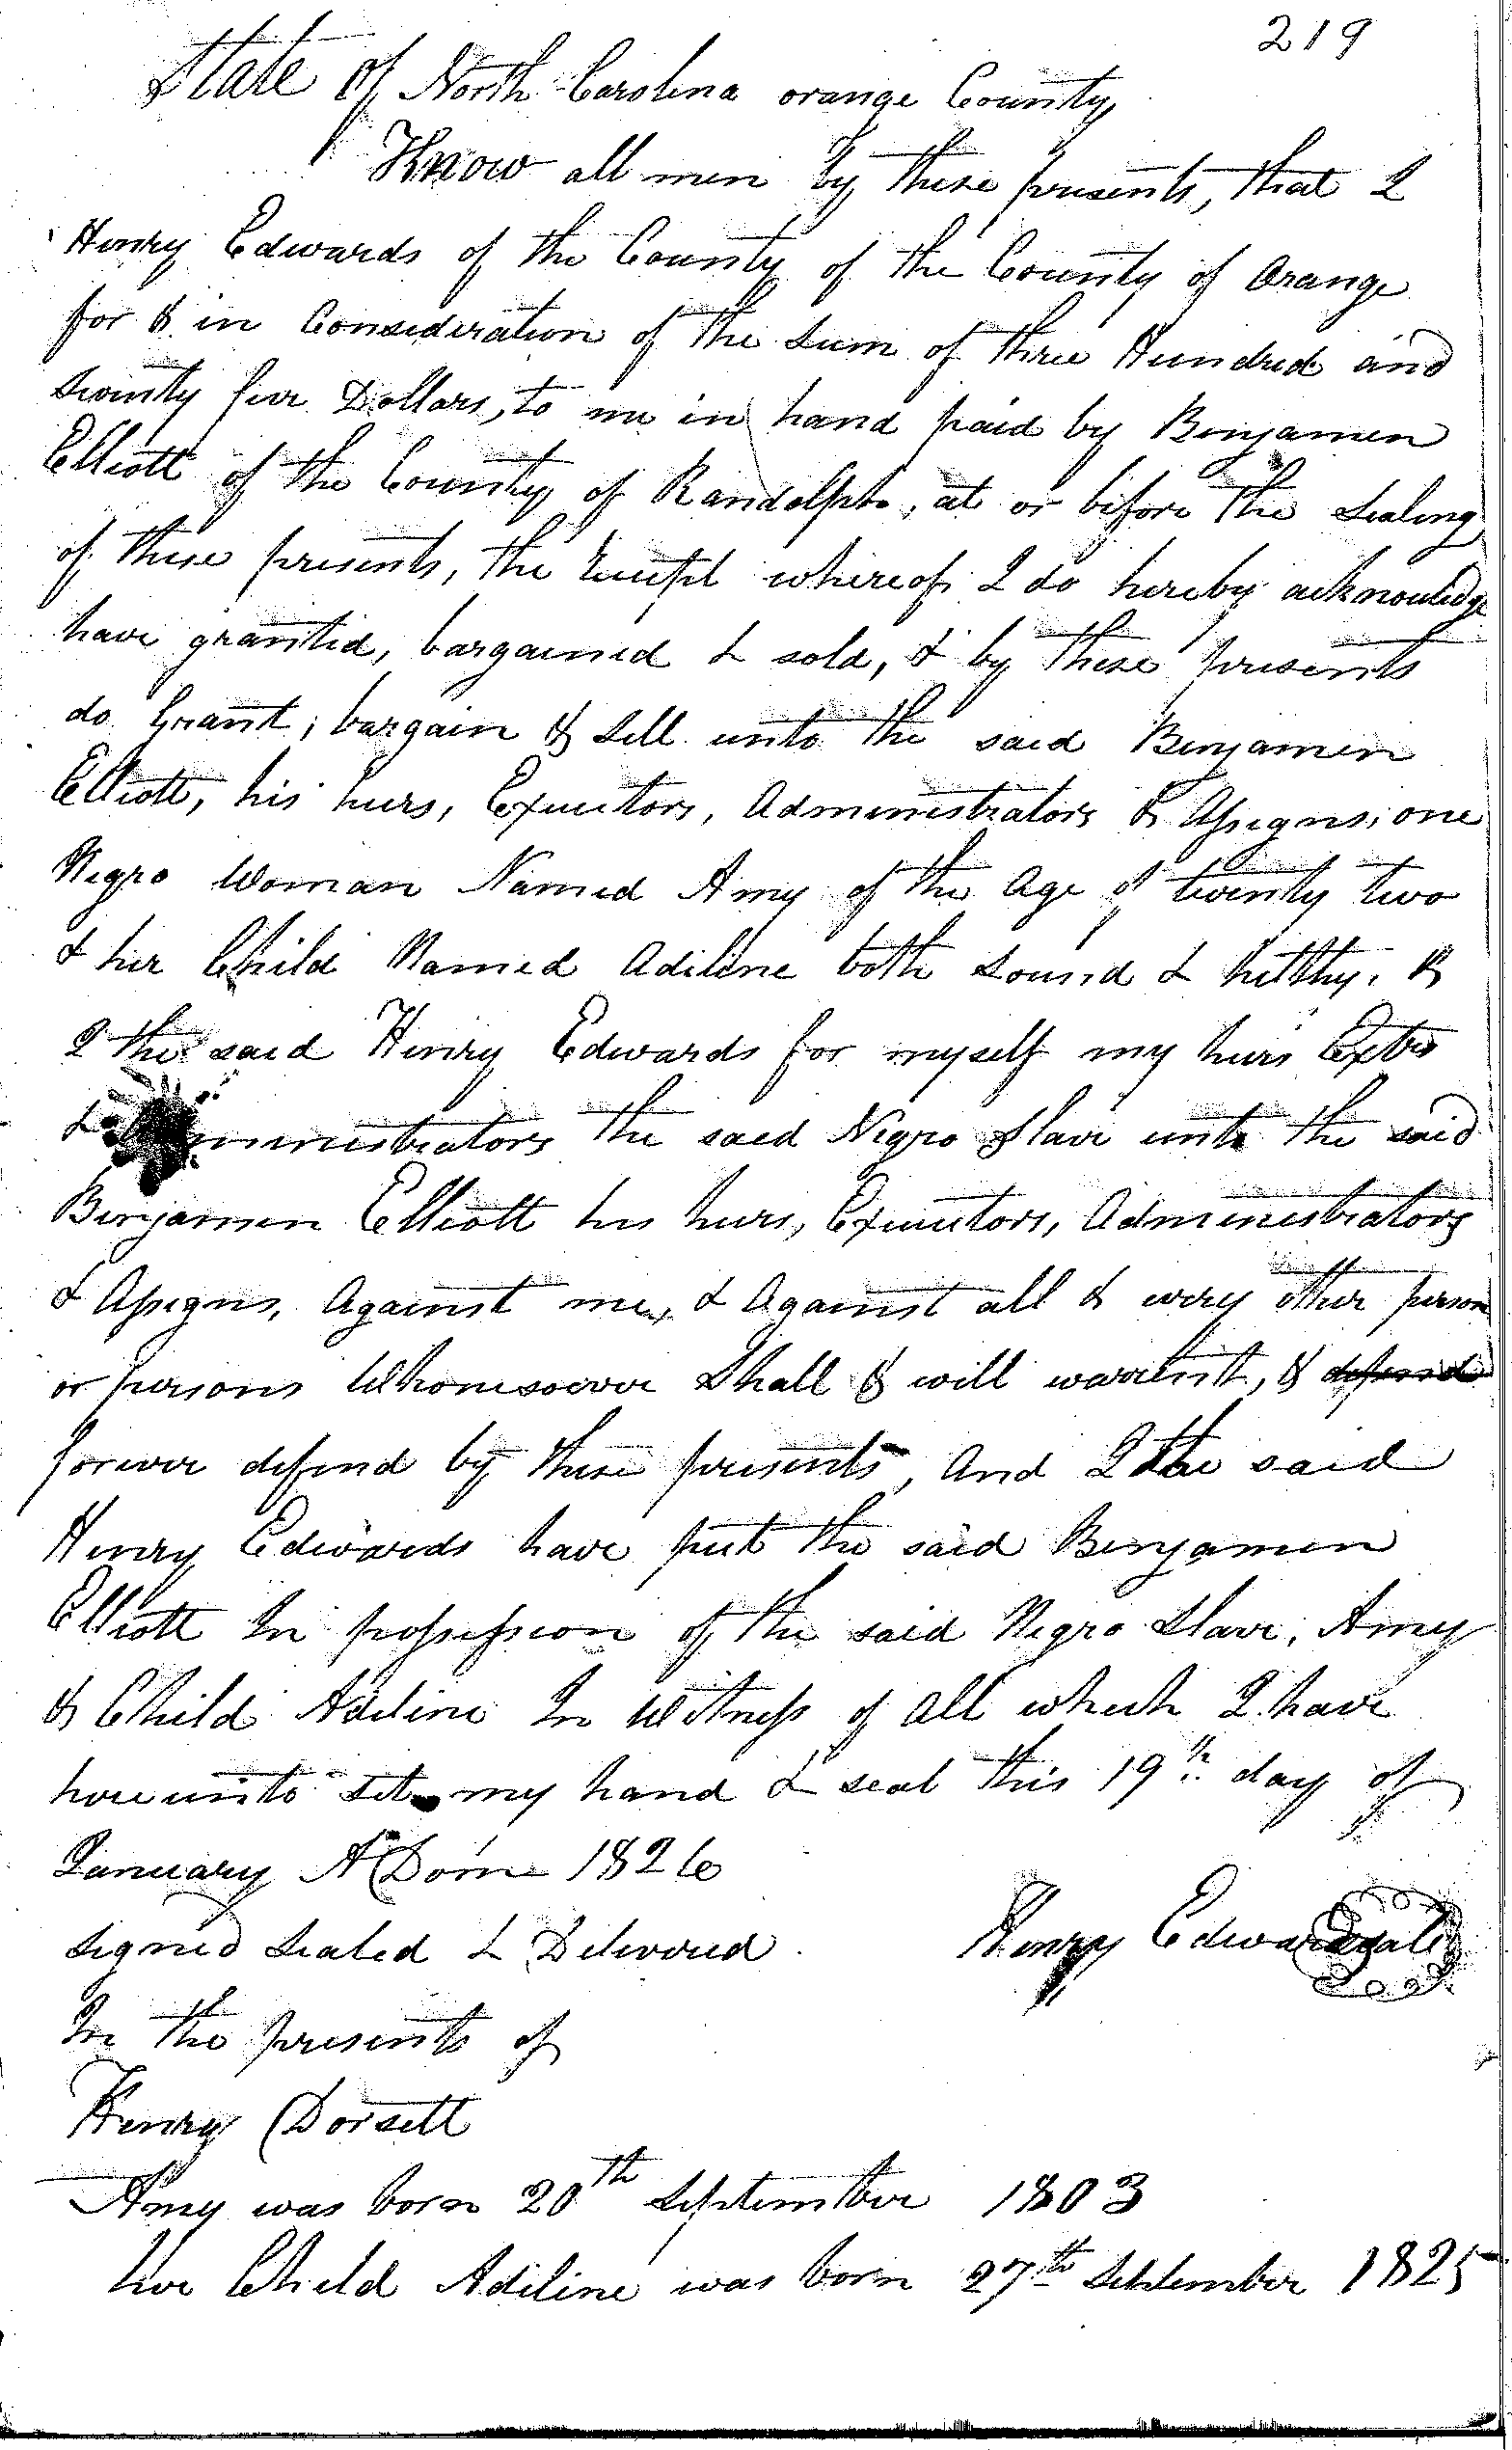 219
State of North Carolina orange County
Know all men by these presents, that I
Henry Edwards of the County of the County of Orange
for & in Consideration of the Sum of three Hundred and
Seventy five Dollars, to me in hand paid by Benjamen
Elliott of the County of Randolph, at or before the Sealing
of these presents, the whereof I do hereby acknowledge
have granted, bargained & sold, & by these presents
do Grant, bargain & Sell unto the said Benjamen
Elliott, his heirs, Executors, Administrators & Assigns, one
Negro Woman Named Amy of the Age of twenty two
& her Child Named Adiline both Sound & helthy. &
I the said Henry Edwards for myself my heirs Extrs
& ministrators the said Negro Slave unto the said
Benjamen Elliott his heirs, Executors, Administrators
& Assigns, Against me, & Against all & every other person
or persons Whomesoever Shall & will warrent, & defend
forever defend by these presents, And I the said
Henry Edwards have put the said Benjamen
Elliott In possession of the said Negro Slave, Amy
& Child Adiline In Witness of all which I have
hereunto Set my hand & seal this 19th day of
January A Dom 1826
Signed Sealed & Delivered
Henry Edwards Seal
In the presents of
Henry Dorsett
Amy was born 20th September 1803
her Child Adiline was born 27th September 1825